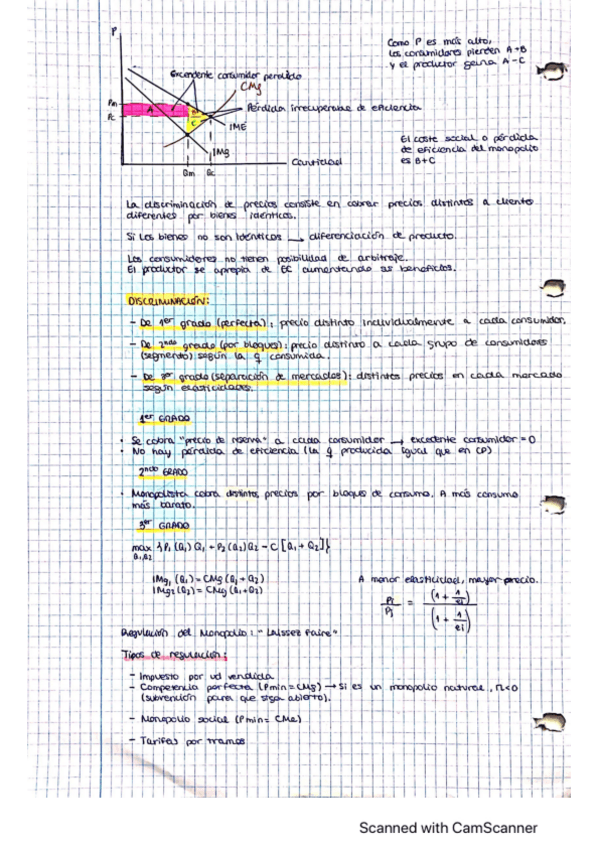 P
Como P es más alto,
los consumidores pierden A+B
y el productor gana A-C
Excendente consumidor perdido
CMg
Pm
A
B
Pérdida irrecuperable de eficiencia
Pc
C
IME
El coste social o pérdida
de eficiencia del monopolio
es B+C
IMg
Cantidad
Qm
Qc
La discriminación de precios consiste en cobrar precios distintos a cliente
diferentes por bienes idénticos.
Si los bienes no son idénticos → diferenciación de producto.
Los consumidores no tienen posibilidad de arbitraje.
El productor se apropia de EC aumentando ss beneficios.
DISCRIMINACIÓN:
- De 1er grado (perfecta): precio distinto individualmente a cada consumidor.
- De 2ndo grado (por bloques): precio distinto a cada grupo de consumidores
(segmento) según la q consumida.
- De 3er grado (separación de mercados): distintos precios en cada mercado
según elasticidades.
1er GRADO
• Se cobra "precio de reserva" a cada consumidor → excedente consumidor = 0
• No hay pérdida de eficiencia (la q producida igual que en CP)
2ndo GRADO
• Monopolista cobra distintos precios por bloques de consumo, A más consumo
más barato.
3er GRADO
max {P1(Q1)Q1 + P2(Q2)Q2 - C[Q1+Q2]}
Q1,Q2
IMg1(Q1) = CMg(Q1+Q2)
IMg2(Q2) = CMg(Q1+Q2)
A menor elasticidad, mayor precio.
Pi/Pj = (1 + 1/ej)/(1 + 1/ei)
Regulación del Monopolio: "Laissez Faire"
Tipos de regulación:
- Impuesto por ud vendida
- Competencia perfecta (Pmin = CMg) → Si es un monopolio natural, π<0
(subvención para que siga abierto).
- Monopolio social (Pmin = CMe)
- Tarifas por tramos
Scanned with CamScanner